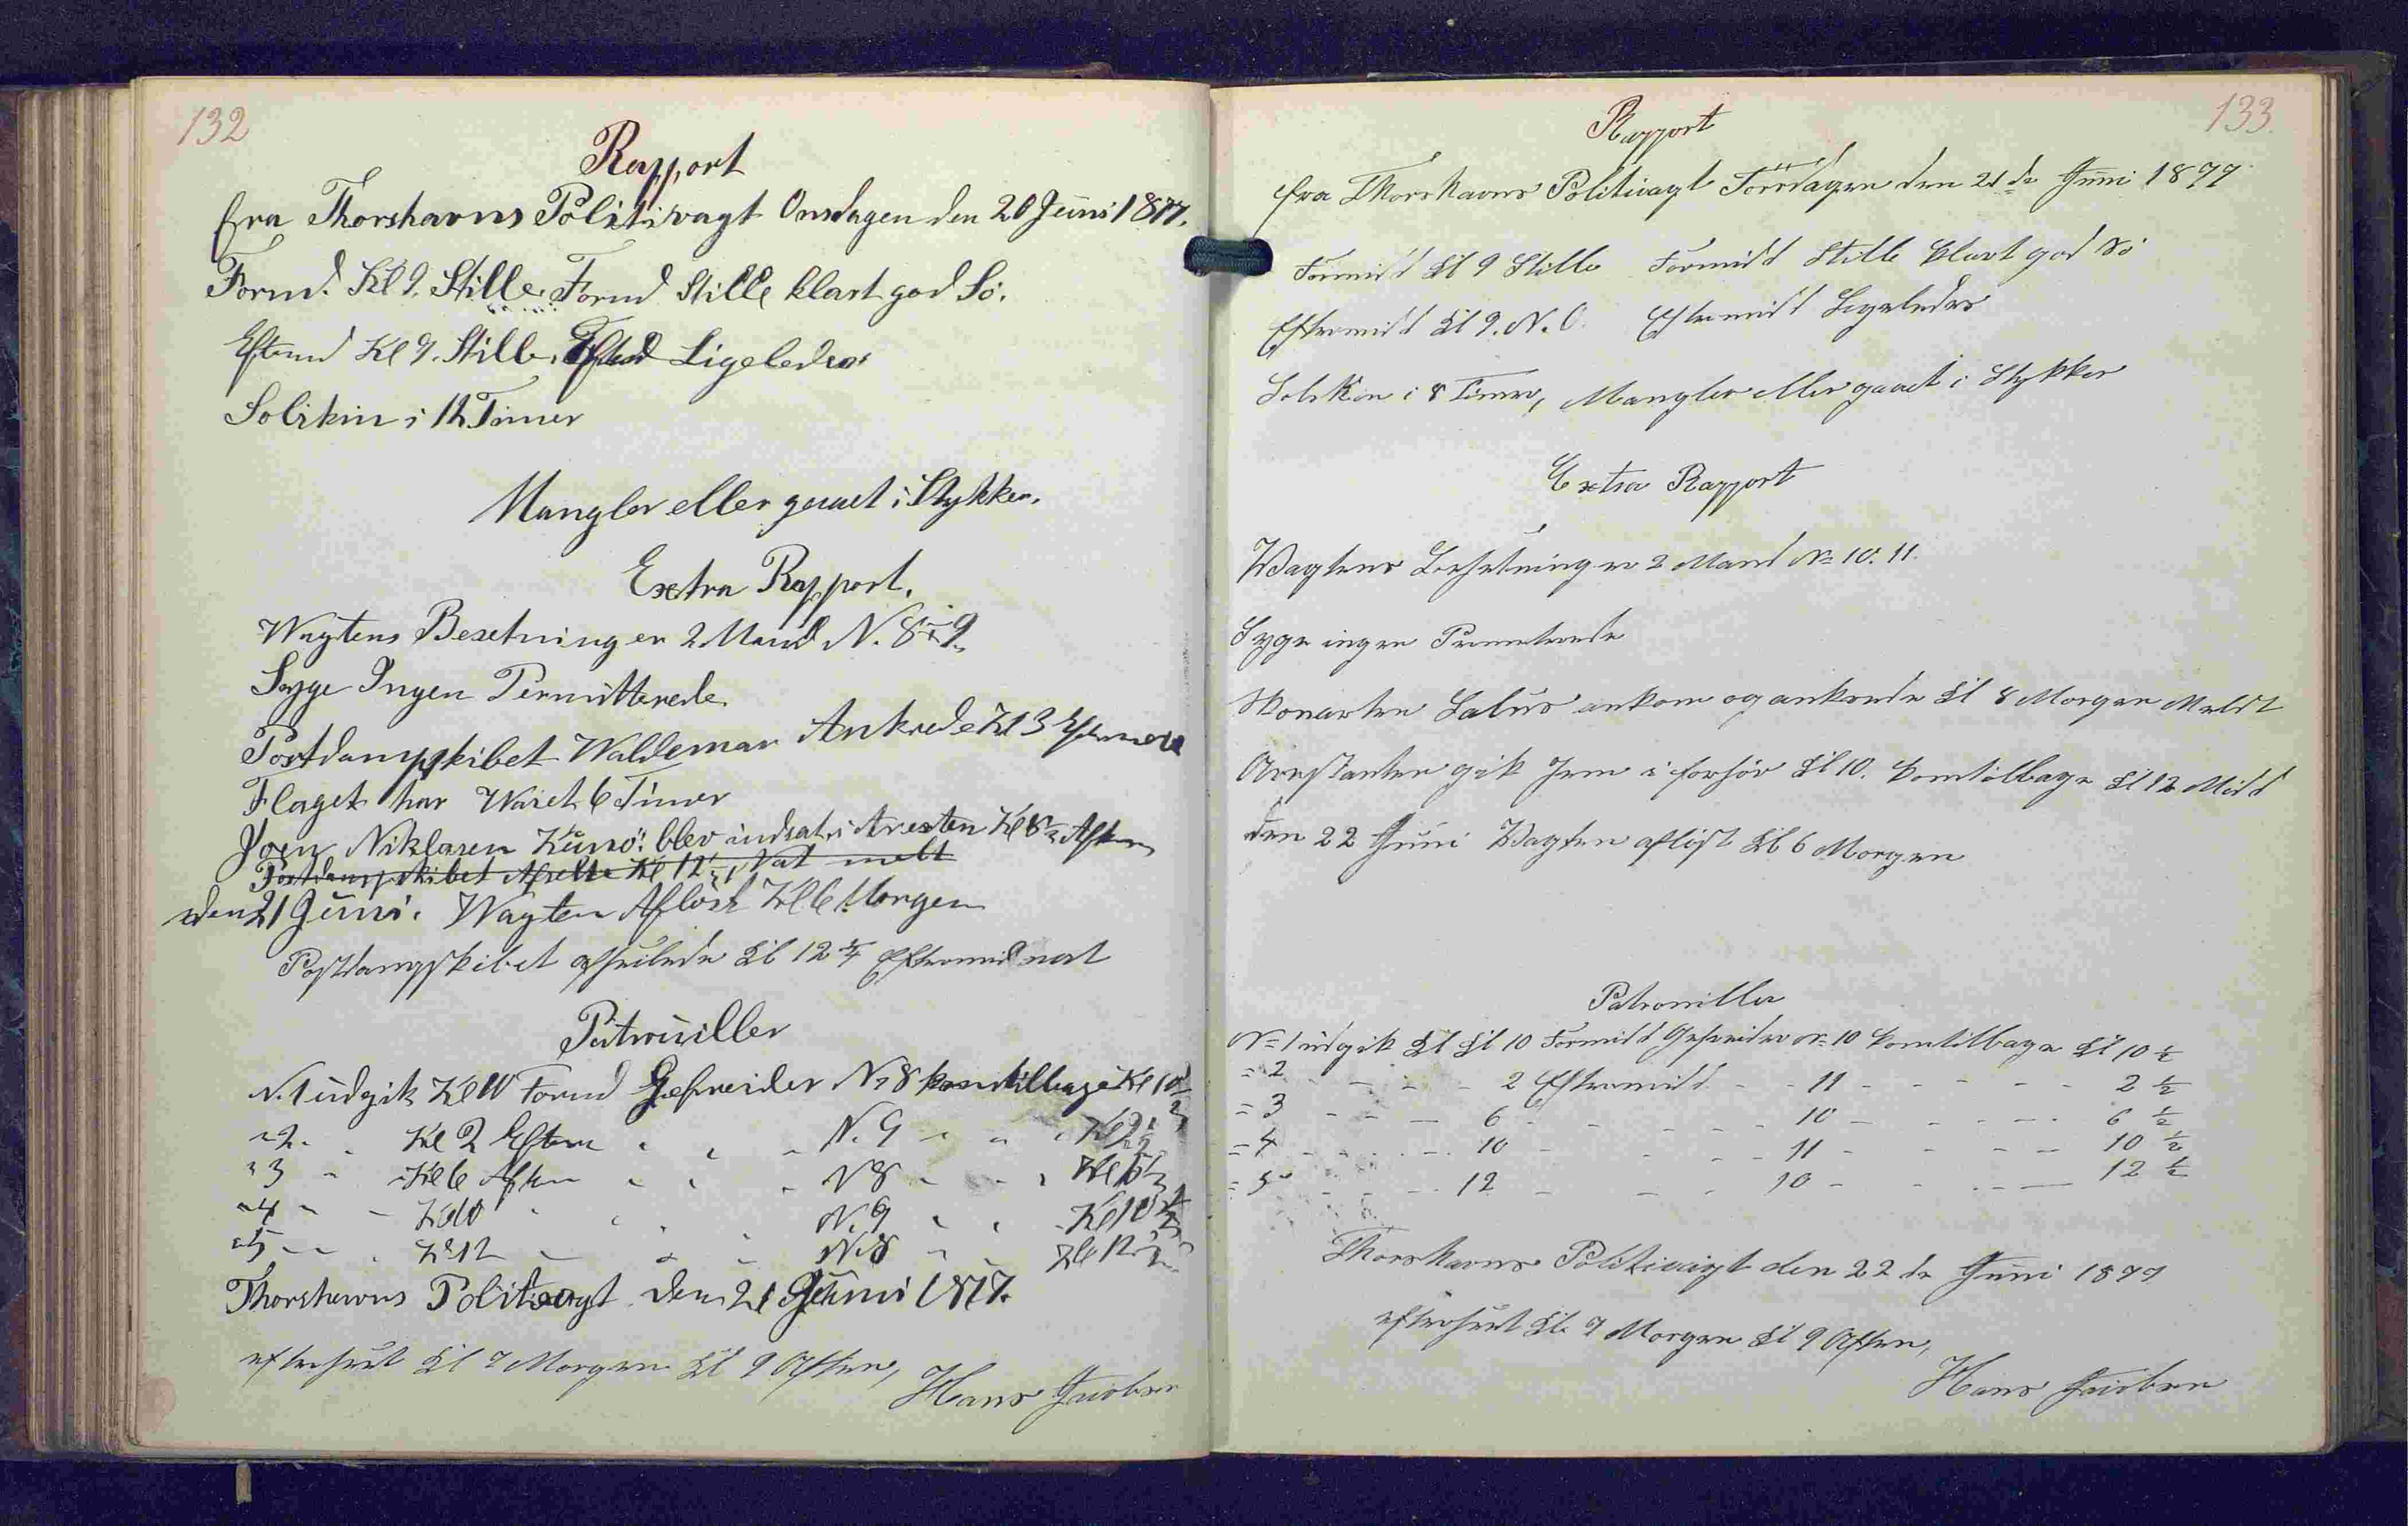 132
Rapport
fra Thorshavns Politivagt Onsdagen den 20 Juni 1877.
Formd. Kl 9. Stille. Formd Stille klart god Sö.
Eftmd Kl 9. Stille. Eftmd Ligeledes
Solskin i 12 Timer
Mangler eller gaaet i Stykker.
Extra Rapport.
Wagtens Besetning er 2 Mand N. 8 & 9.
Syge Ingen Permitterede
Postdampskibet Waldemar Ankrede Kl 3
Flaget har Waiet 6 Timer
Joen Niklasen Kunö: blev indsat i Aresten Kl 8½ Aften
Postdampskibet Afseilte Kl 12 Nat melt
den 21 Juni. Wagten Aflöst Kl 6 Morgen
Postdampskibet afseilede Kl 12 ¼ Eftermidnat
Patrouiller
N. 1 udgik Kl 10 Formd Gefreider N. 8 kom tilbage Kl 10½
" 2 " Kl 2 Efterm " " " N. 9 " " " Kl 2½
" 3 " Kl 6 Aften " " " N 8 " " " Kl 6½
" 4 " " Kl 10 " " " " N. 9 " " " Kl 10½
" 5 " " " Kl 12 " " " N. 8 " " Kl 12½
Thorshavns Politivagt den 21 Juni 1877.
efterseet Kl 7 Morgen Kl 9 Aften,
Hans Jacobsen
133.
Rapport
fra Thorshavns Politivagt Torsdagen den 21 de Juni 1877
Formidd Kl 9 Stille Formidd Stille klart god Sö
Eftermidd Kl 9. N. O. Eftermidd Ligeledes
Solskin i 8 Timer, Mangler eller gaaet i Stykker
Extra Rapport
Wagtens Besetning er 2 Mand No 10. 11.
Syge ingen Permiterede
Skonarten Salus ankom og ankrede Kl 8 Morgen Meldt
Arestanten gik hen i forhör Kl 10. kom tilbage Kl 12 Midd
den 22 Juni Vagten aflöst Kl 6 Morgen
Patrouiller
No 1 udgik Kl Kl 10 Formidd Gefreider No 10 kom tilbage Kl 10 ½
= 2 - - - - 2 Eftermidd - - 11 - - - - - 2 ½
= 3 - - - 6 - - - - - 10 - - - - - 6 ½
= 4 - - - - 10 - - - - 11 - - - - 10 ½
= 5 - - - 12 - - - 10 - - - - 12 ½
Thorshavns Politivagt den 22 de Juni 1877
efterseet Kl. 7 Morgen Kl 9 Aften,
Hans Jacobsen